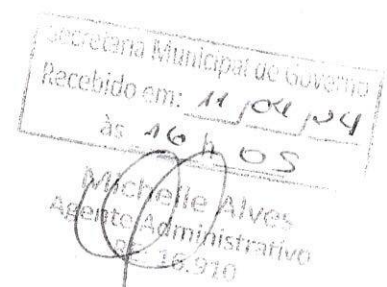 Secretaria Municipal de Governo
Recebido em: 11/04/24
às 16 h 05
Michelle Alves
Agente Administrativo
RE 16.910